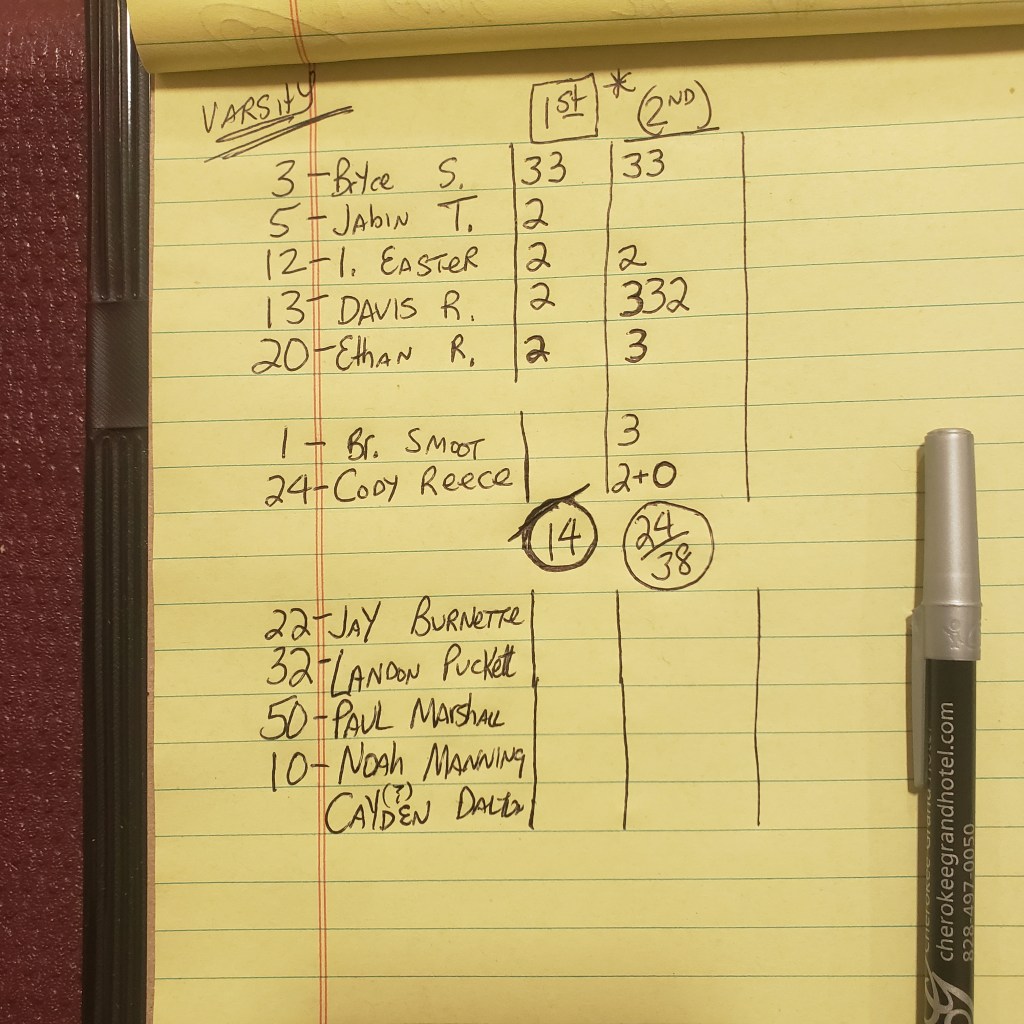 VARSITY 1ST * (2ND)
3 - Bryce S. 33 33
5 - JABIN T. 2
12 - I. EASTER 2 2
13 - DAVIS R. 2 332
20 - Ethan R. 2 3
1 - Br. SMOOT 3
24 - CODY Reece 2+0
14 24/38
22 - JAY BURNETTE
32 - LANDON Puckett
50 - PAUL Marshall
10 - NOAH MANNING
(?)
CAYDEN DALTON
cherokeegrandhotel.com
828-497-0050